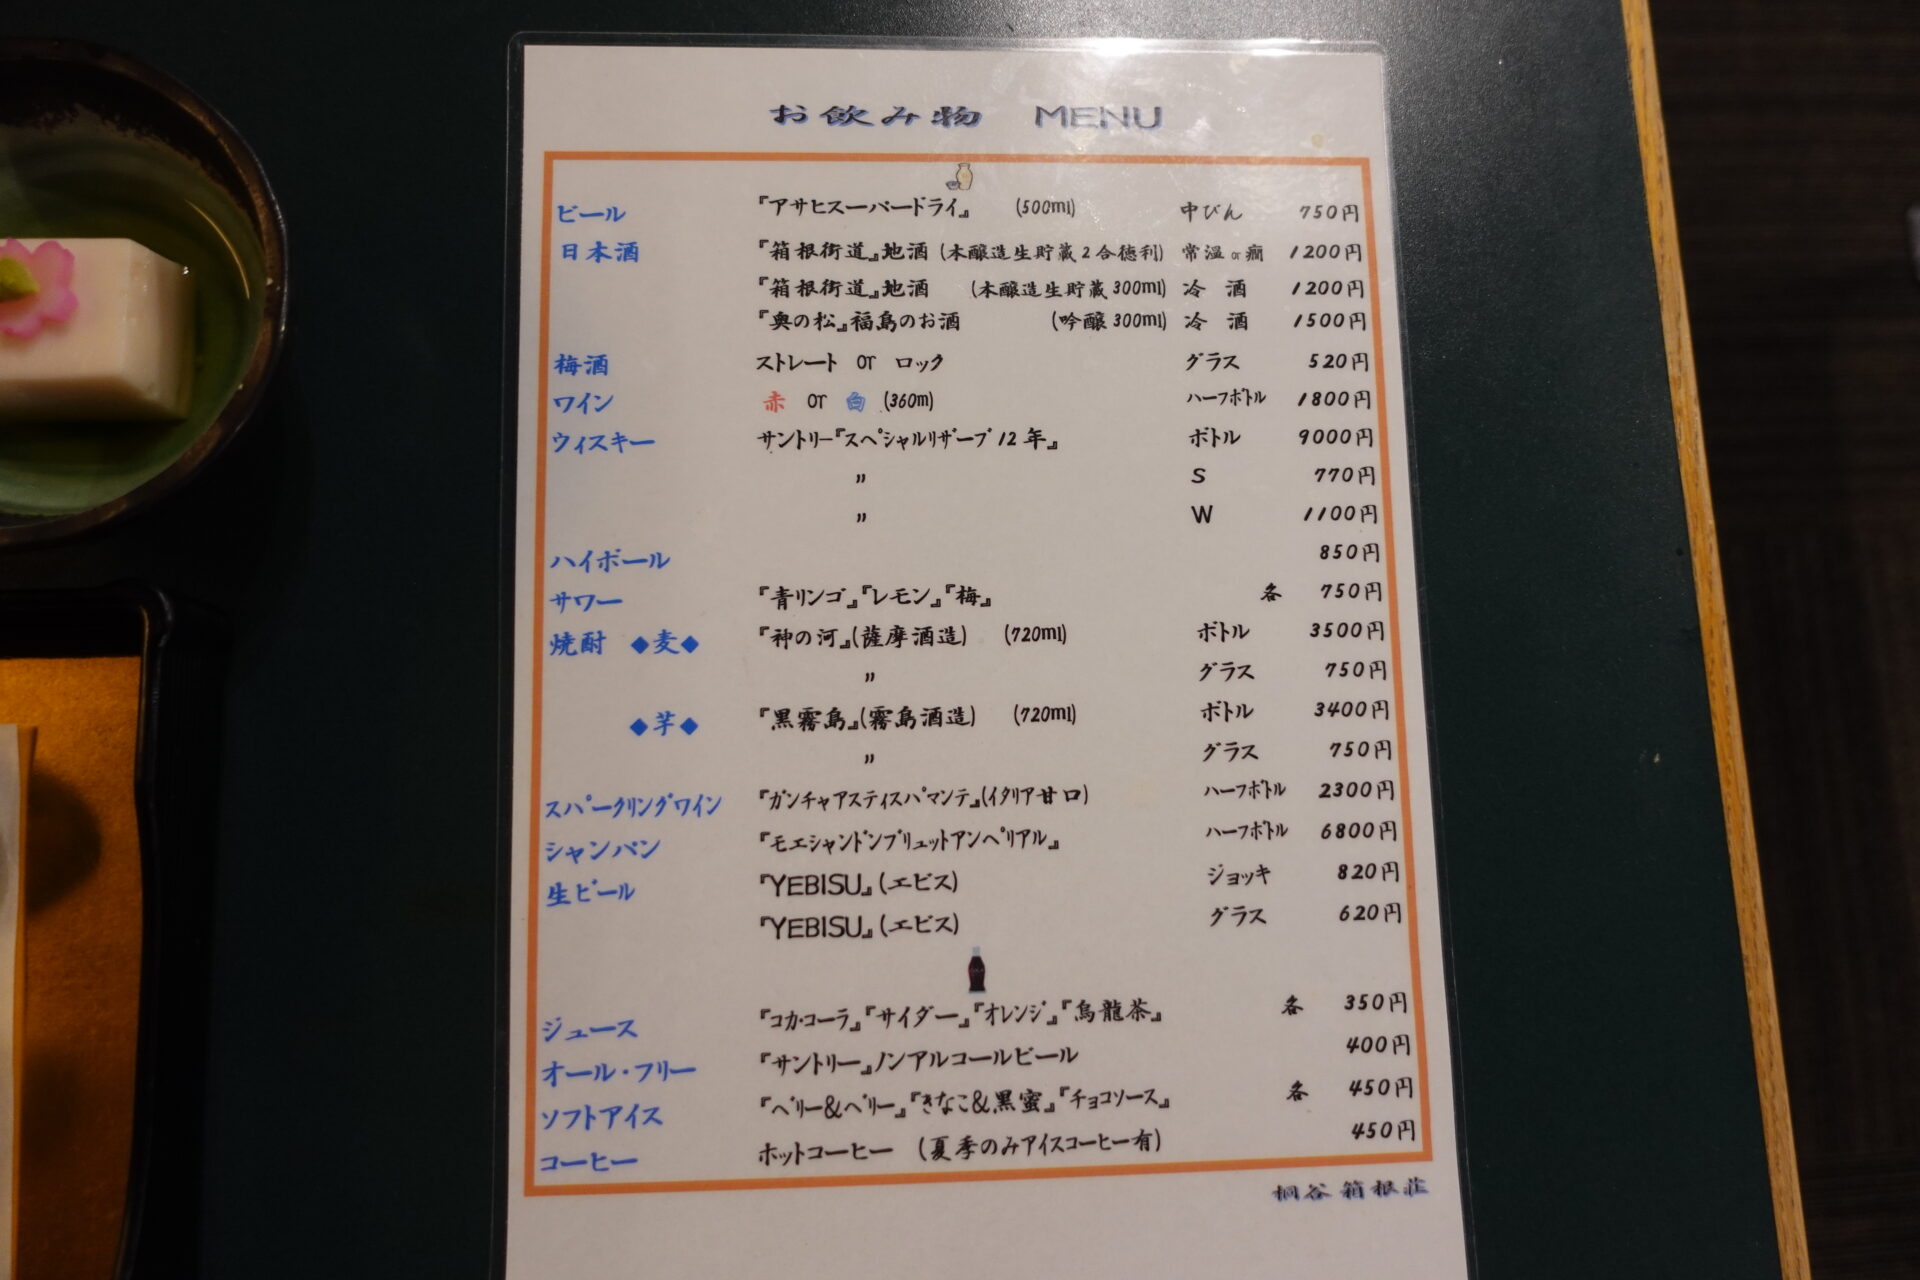 お飲み物 MENU
ビール 『アサヒスーパードライ』 (500ml) 中びん 750円
日本酒 『箱根街道』地酒 (本醸造生貯蔵2合徳利) 常温or癇 1200円
『箱根街道』地酒 (本醸造生貯蔵300ml) 冷酒 1200円
『奥の松』福島のお酒 (吟醸300ml) 冷酒 1500円
梅酒 ストレート or ロック グラス 520円
ワイン 赤 or 白 (360m) ハーフボトル 1800円
ウィスキー サントリー『スペシャルリザーブ12年』 ボトル 9000円
〃 S 770円
〃 W 1100円
ハイボール 850円
サワー 『青リンゴ』『レモン』『梅』 各 750円
焼酎 ◆麦◆ 『神の河』(薩摩酒造) (720ml) ボトル 3500円
〃 グラス 750円
◆芋◆ 『黒霧島』(霧島酒造) (720ml) ボトル 3400円
〃 グラス 750円
スパークリングワイン 『ガンチャアスティスパマンテ』(イタリア甘口) ハーフボトル 2300円
シャンパン 『モエシャンドンブリュットアンペリアル』 ハーフボトル 6800円
生ビール 『YEBISU』(エビス) ジョッキ 820円
『YEBISU』(エビス) グラス 620円
ジュース 『コカ・コーラ』『サイダー』『オレンジ』『烏龍茶』 各 350円
オール・フリー 『サントリー』ノンアルコールビール 400円
ソフトアイス 『ベリー&ベリー』『きなこ&黒蜜』『チョコソース』 各 450円
コーヒー ホットコーヒー (夏季のみアイスコーヒー有) 450円
桐谷箱根荘